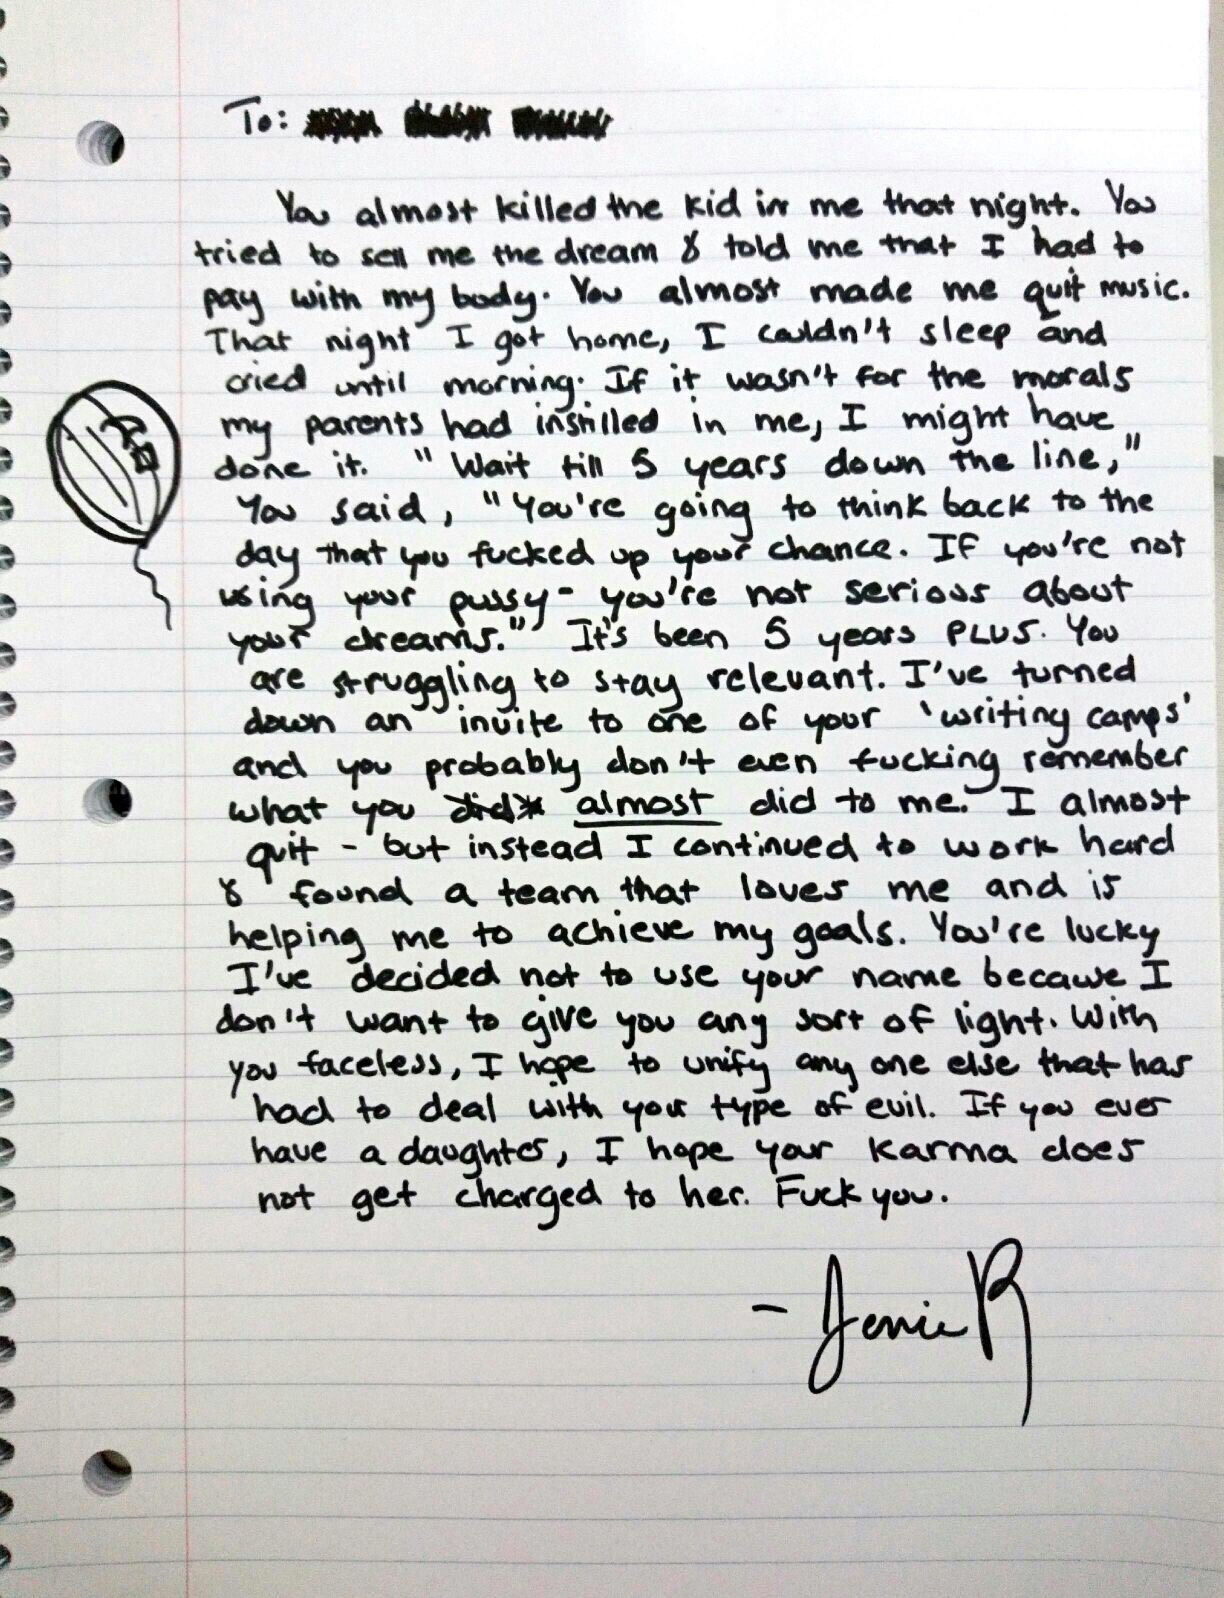 To:
You almost killed the kid in me that night. You
tried to sell me the dream & told me that I had to
pay with my body. You almost made me quit music.
That night I got home, I couldn't sleep and
cried until morning. If it wasn't for the morals
my parents had instilled in me, I might have
done it. "Wait till 5 years down the line,"
You said, "You're going to think back to the
day that you fucked up your chance. If you're not
using your pussy - you're not serious about
your dreams." It's been 5 years PLUS. You
are struggling to stay relevant. I've turned
down an invite to one of your 'writing camps'
and you probably don't even fucking remember
what you did* almost did to me. I almost
quit - but instead I continued to work hard
& found a team that loves me and is
helping me to achieve my goals. You're lucky
I've decided not to use your name because I
don't want to give you any sort of light. With
you faceless, I hope to unify any one else that has
had to deal with your type of evil. If you ever
have a daughter, I hope your karma does
not get charged to her. Fuck you.
- Jenie R